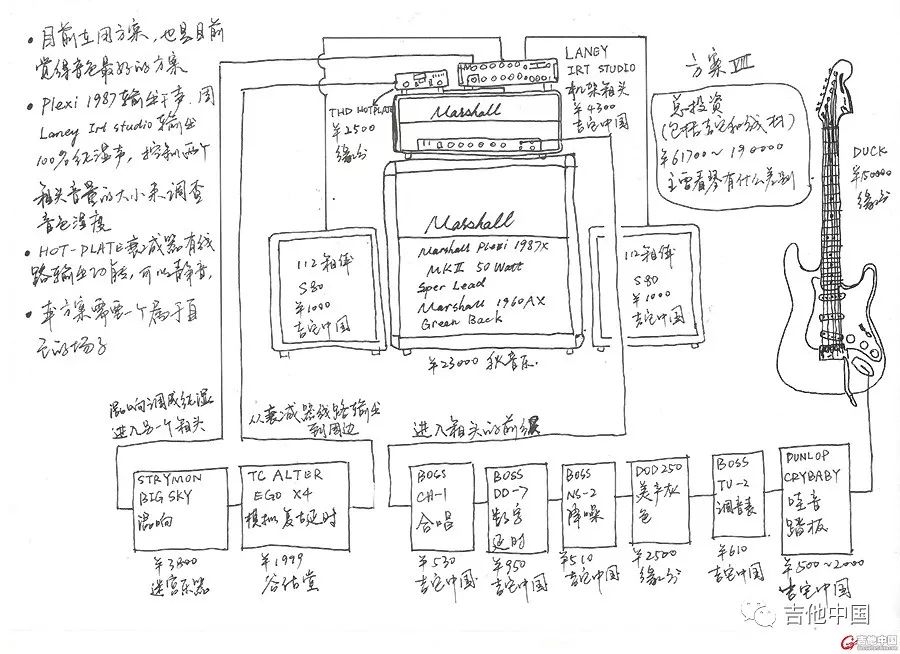 • 目前在用方案，也是目前
觉得音色最好的方案
• Plexi 1987输出干声，用
Laney Irt studio输出
100%纯湿声，控制两个
箱头音量的大小来调整
音色湿度
• HOT-PLATE衰减器有线
路输出功能，可以静音，
• 本方案需要一个属于自
己的场子
THD HOTPLATE
¥2500
缘分
LANEY
IRT STUDIO
机架箱头
¥4300
吉它中国
方案 VIII
总投资
(包括吉它和线材)
¥61700~190000
主要看琴有什么差别
DUCK
¥150000
缘分
Marshall
Marshall
Marshall Plexi 1987X
MKII 50 Watt
Sper Lead
Marshall 1960AX
Green Back
¥23000 秋音乐.
112箱体
S80
¥1000
吉它中国
112箱体
S80
¥1000
吉它中国
混响调成纯湿
进入另一个箱头
从衰减器线路输出
到周边
进入箱头的前级
STRYMON
BIG SKY
混响
¥3800
迷宫乐器
TC ALTER
EGO X4
模拟复古延时
¥1999
谷佑堂
BOSS
CH-1
合唱
¥530
吉它中国
BOSS
DD-7
数字
延时
¥950
吉它中国
BOSS
NS-2
降噪
¥510
吉它中国
DOD250
美产灰
色
¥2500
缘分
BOSS
TU-2
调音表
¥610
吉它中国
DUNLOP
CRYBABY
哇音
踏板
¥500~2000
吉它中国
吉他中国
吉他中国